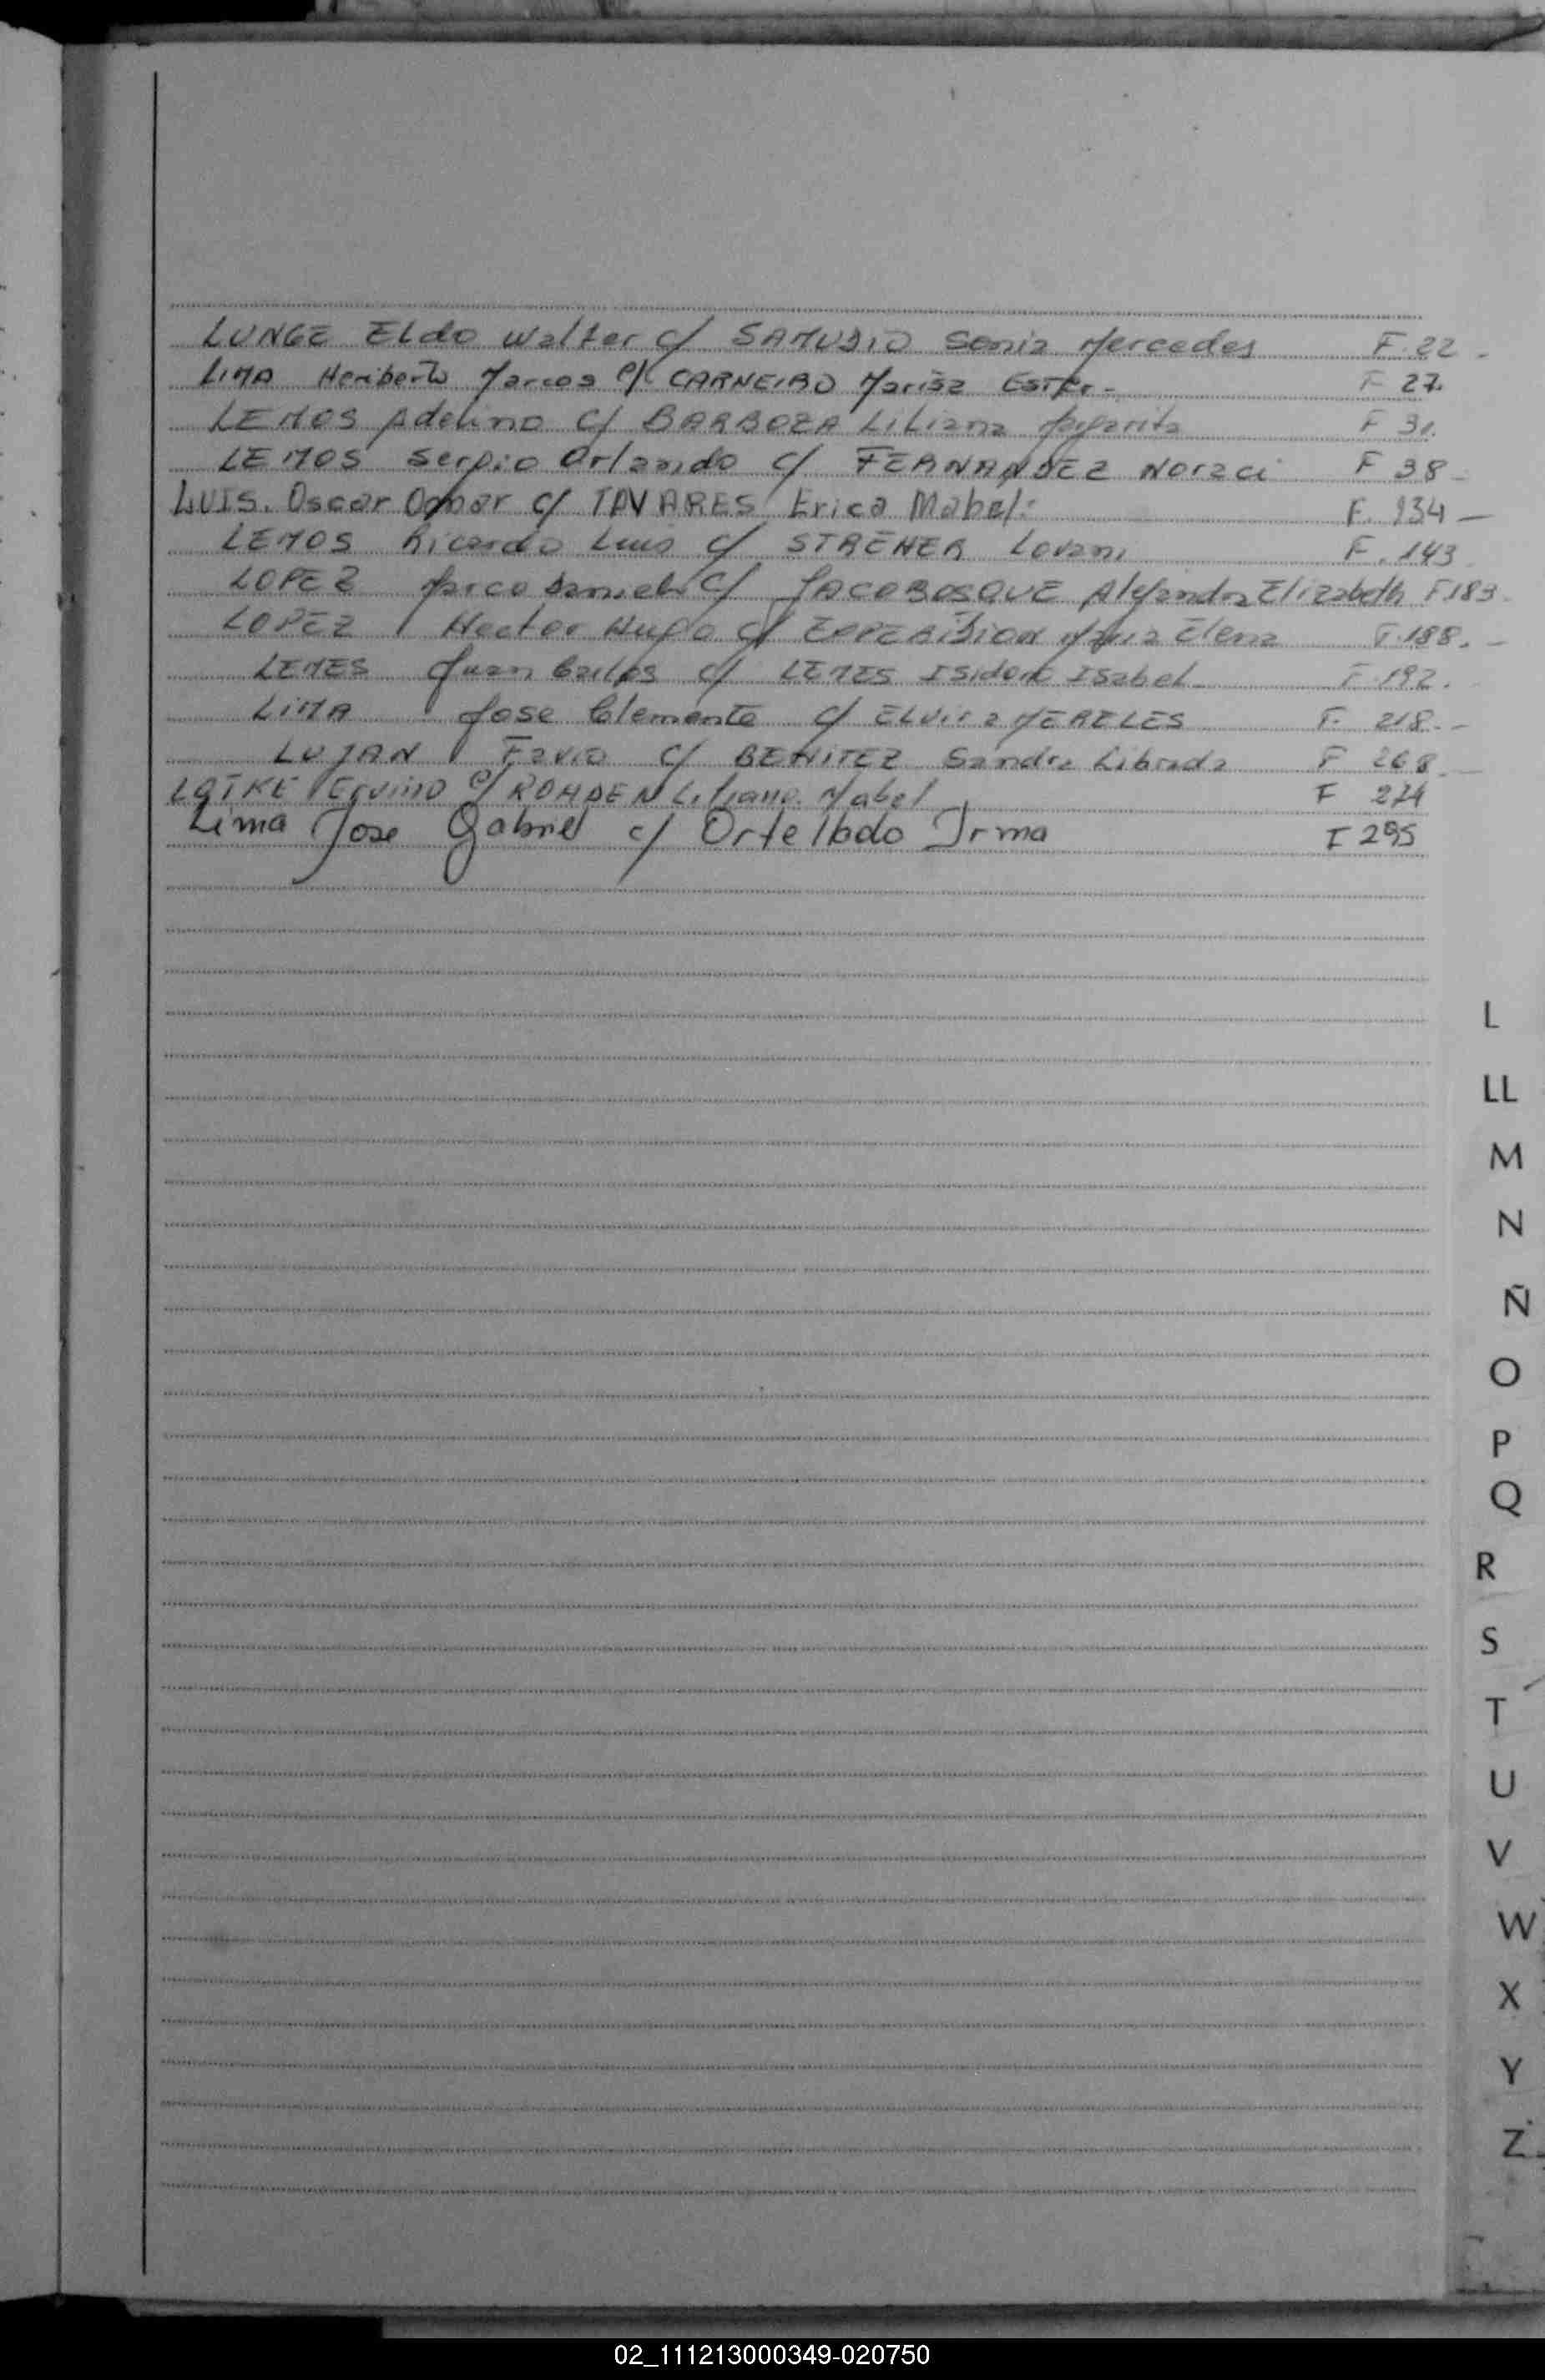 LUNGE Eldo Walter c/ SAMUDIO Sonia Mercedes F.22.
LIMA Heriberto Marcos c/ CARNEIRO Marisa Ester.- F 27.
LEMOS Adelino c/ BARBOZA Liliana Margarita F 31.
LEMOS Sergio Orlando c/ FERNANDEZ Noraci F 38-
LUIS. Oscar Omar c/ TAVARES Erica Mabel: F. 134 -
LEMOS Ricardo Luis c/ STREHER Lovani F. 143
LOPEZ Marco Daniel c/ JACOBOSQUE Alejandra Elizabeth F183.
LOPEZ Hector Hugo c/ Maria Elena F.188.-
LEMES Juan Carlos c/ LEMES Isidora Isabel F.192.
LIMA Jose Clemente c/ ELVIRA MERELES F. 218.-
LUJAN Favio c/ BENITEZ Sandra Librada F 268.-
LATKE Ervino c/ ROHDEN Liliana Mabel F 274
Lima Jose Gabriel c/ Ortellado Irma F 295
L
LL
M
N
Ñ
O
P
Q
R
S
T
U
V
W
X
Y
Z
02_111213000349-020750